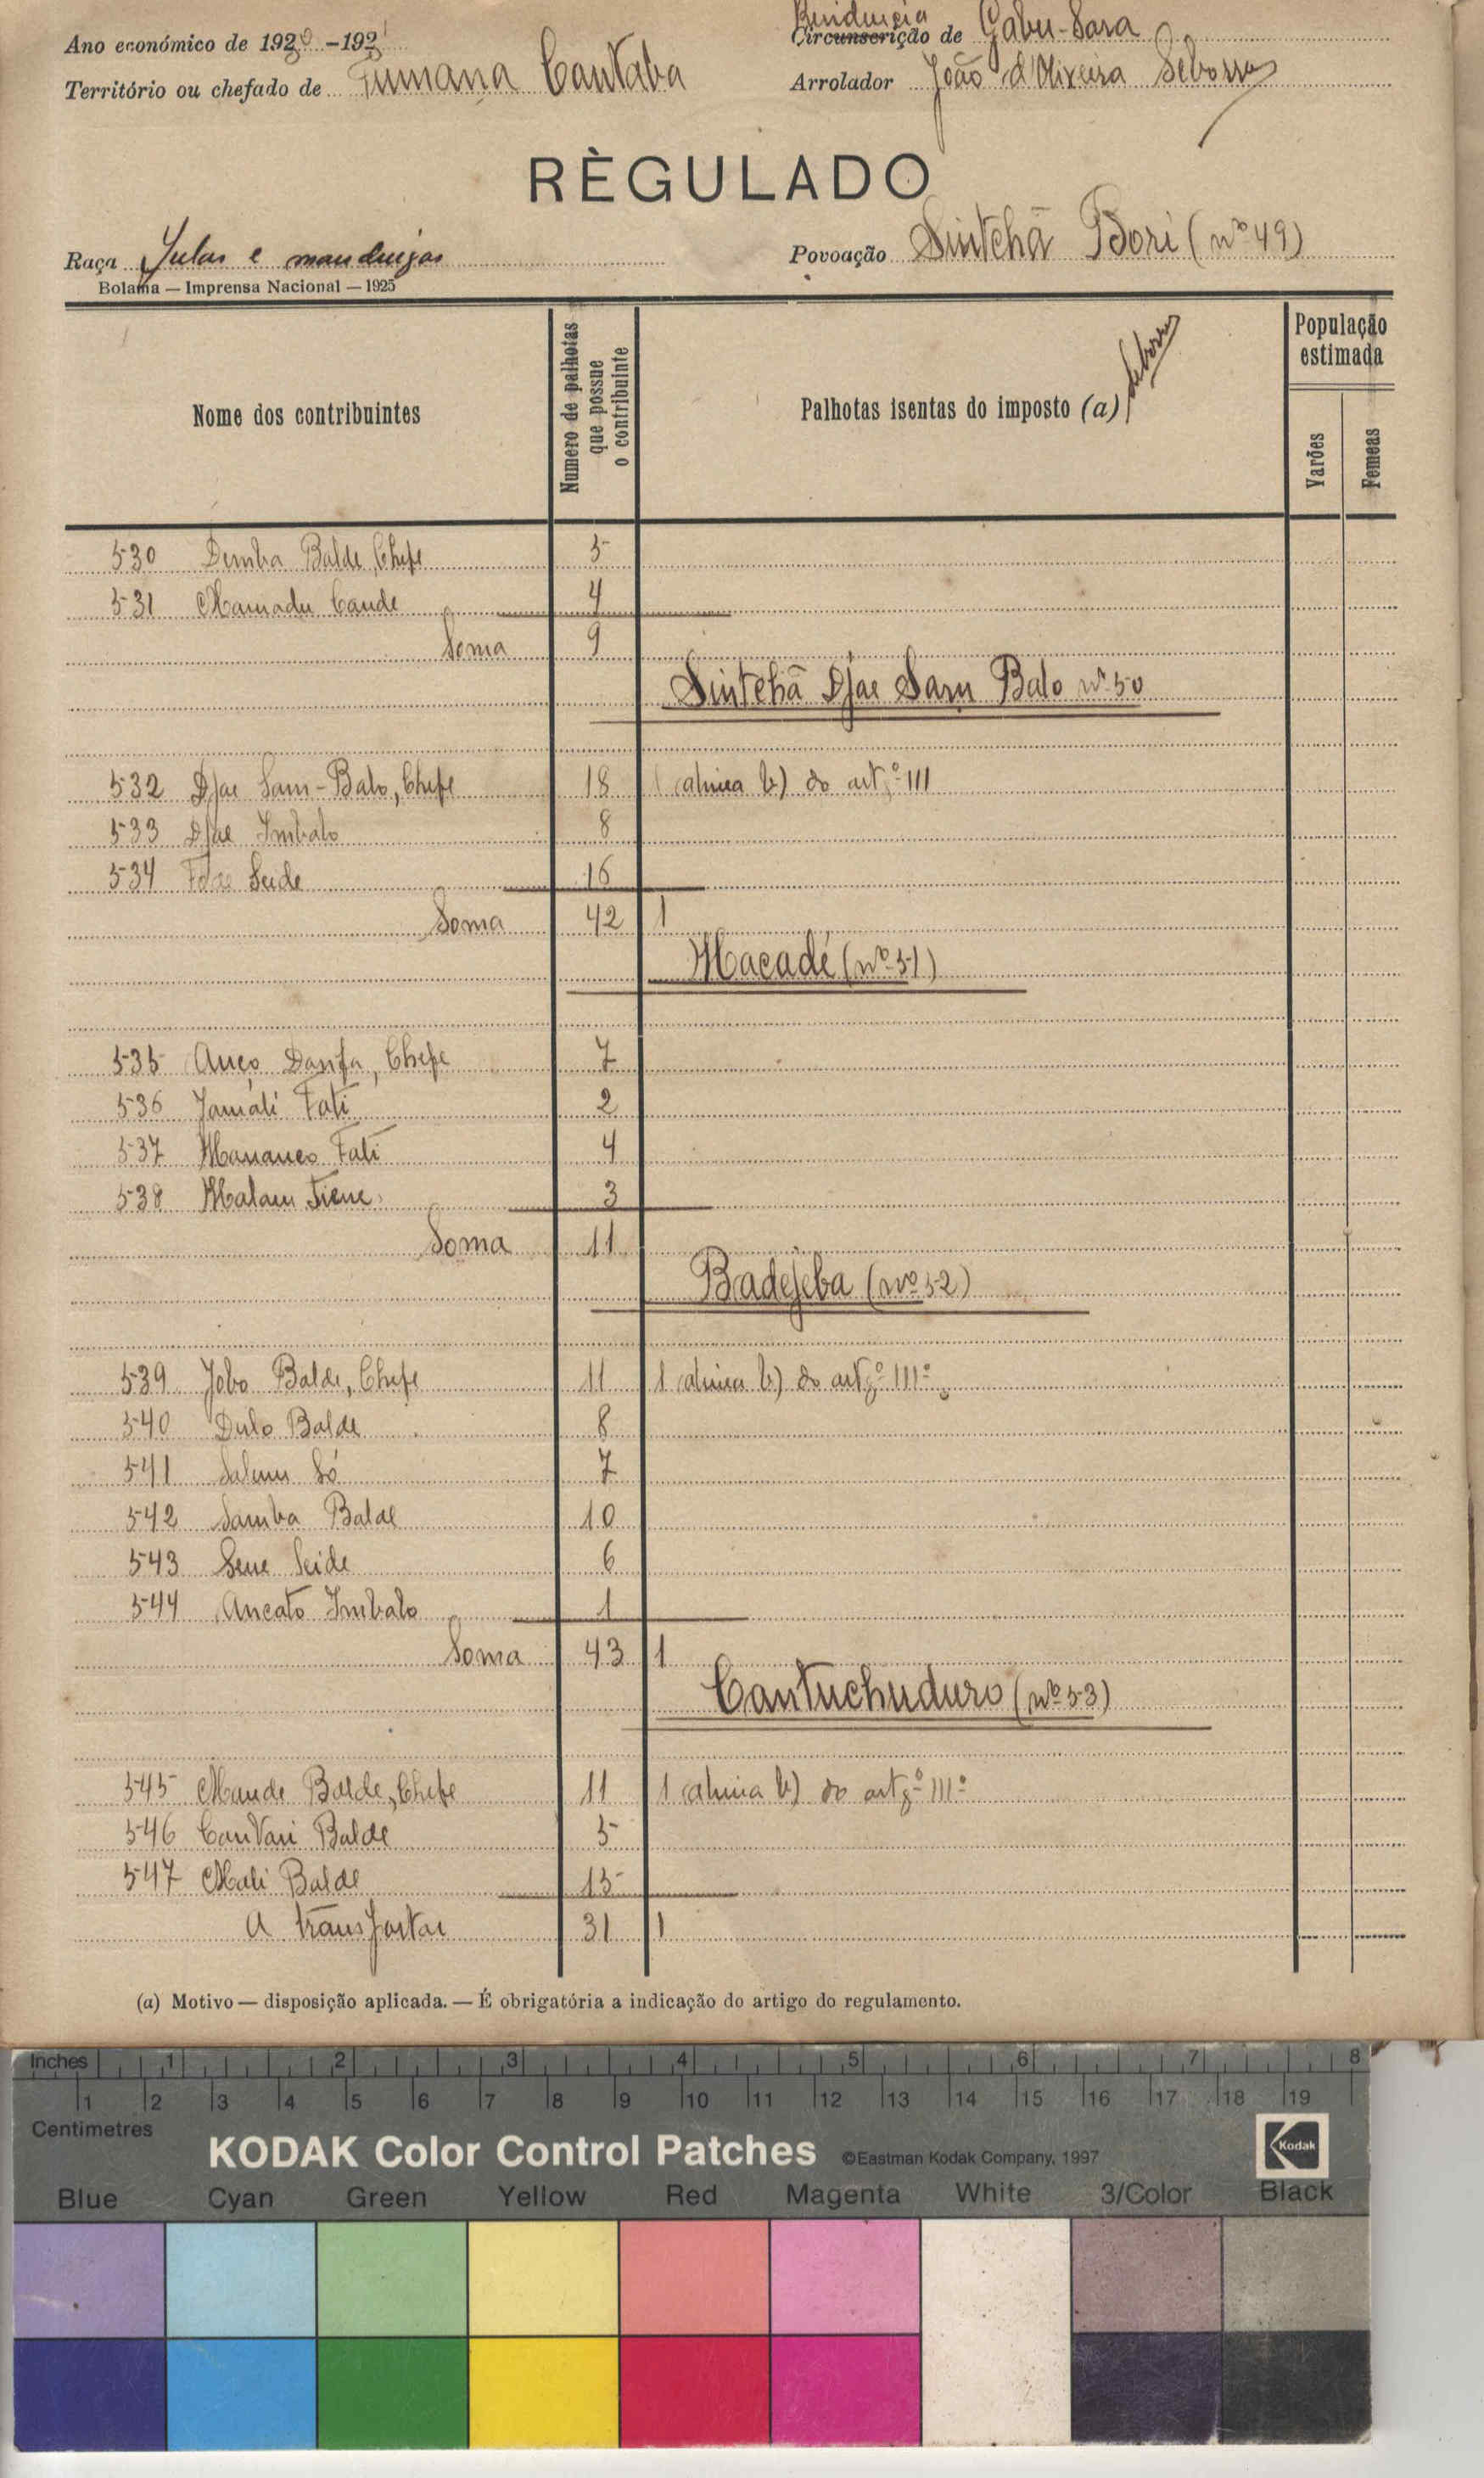 Residencia
Ano económico de 1930-1931 Circunscrição de Gabu-Sara
Território ou chefado de Pumana Cantaba Arrolador João d'Oliveira
RÈGULADO
Raça Fulas e mandingas Povoação Sintchã Bori (nº 49)
Bolama — Imprensa Nacional — 1925
Nome dos contribuintes
Numero de palhotas que possue o contribuinte
Palhotas isentas do imposto (a)
População estimada
Varões
Femeas
530 Demba Balde, Chefe 5
531 Mamadu Cande 4
Soma 9
Sintchã Djae Sam Balo nº 50
532 Djae Sam-Balo, Chefe 18 1 (alinea b) do artº III
533 Djae Imbalo 8
534 Seide 16
Soma 42 1
Macadé (nº 51)
535 Auço Danfa, Chefe 7
536 Jamáli Fati 2
537 Mananco Fati 4
538 Malam 3
Soma 11
Badejeba (nº 52)
539 Jobo Balde, Chefe 11 1 (alinea b) do artgº III º
540 Dulo Balde 8
541 Só 7
542 Samba Balde 10
543 Sene Seide 6
544 Ancato Imbalo 1
Soma 43 1
Cantuchuduro (nº 53)
545 Maude Balde, Chefe 11 1 (alinea b) do artgº III º
546 Cantari Balde 5
547 Mali Balde 15
A transportar 31 1
(a) Motivo — disposição aplicada. — É obrigatória a indicação do artigo do regulamento.
Inches 1 2 3 4 5 6 7 8
1 2 3 4 5 6 7 8 9 10 11 12 13 14 15 16 17 18 19
Centimetres
KODAK Color Control Patches ©Eastman Kodak Company, 1997 Kodak
Blue Cyan Green Yellow Red Magenta White 3/Color Black